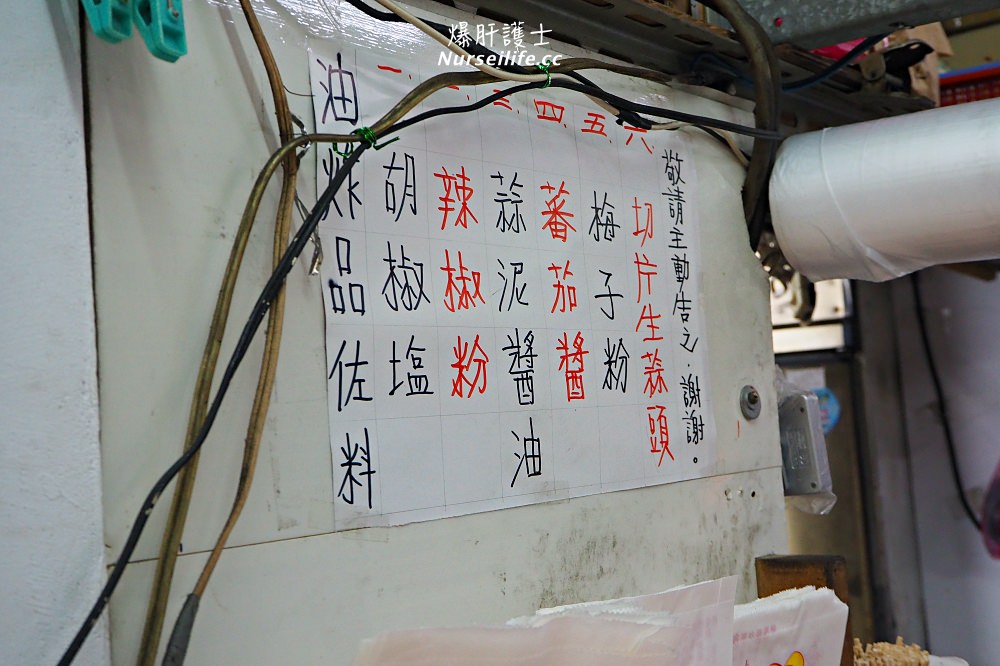 爆肝護士
Nurseilife.cc
油炸品佐料
一、胡椒塩
、辣椒粉
三、蒜泥醬油
四、蕃茄醬
五、梅子粉
六、切片生蒜頭
敬請主動告之,謝謝。